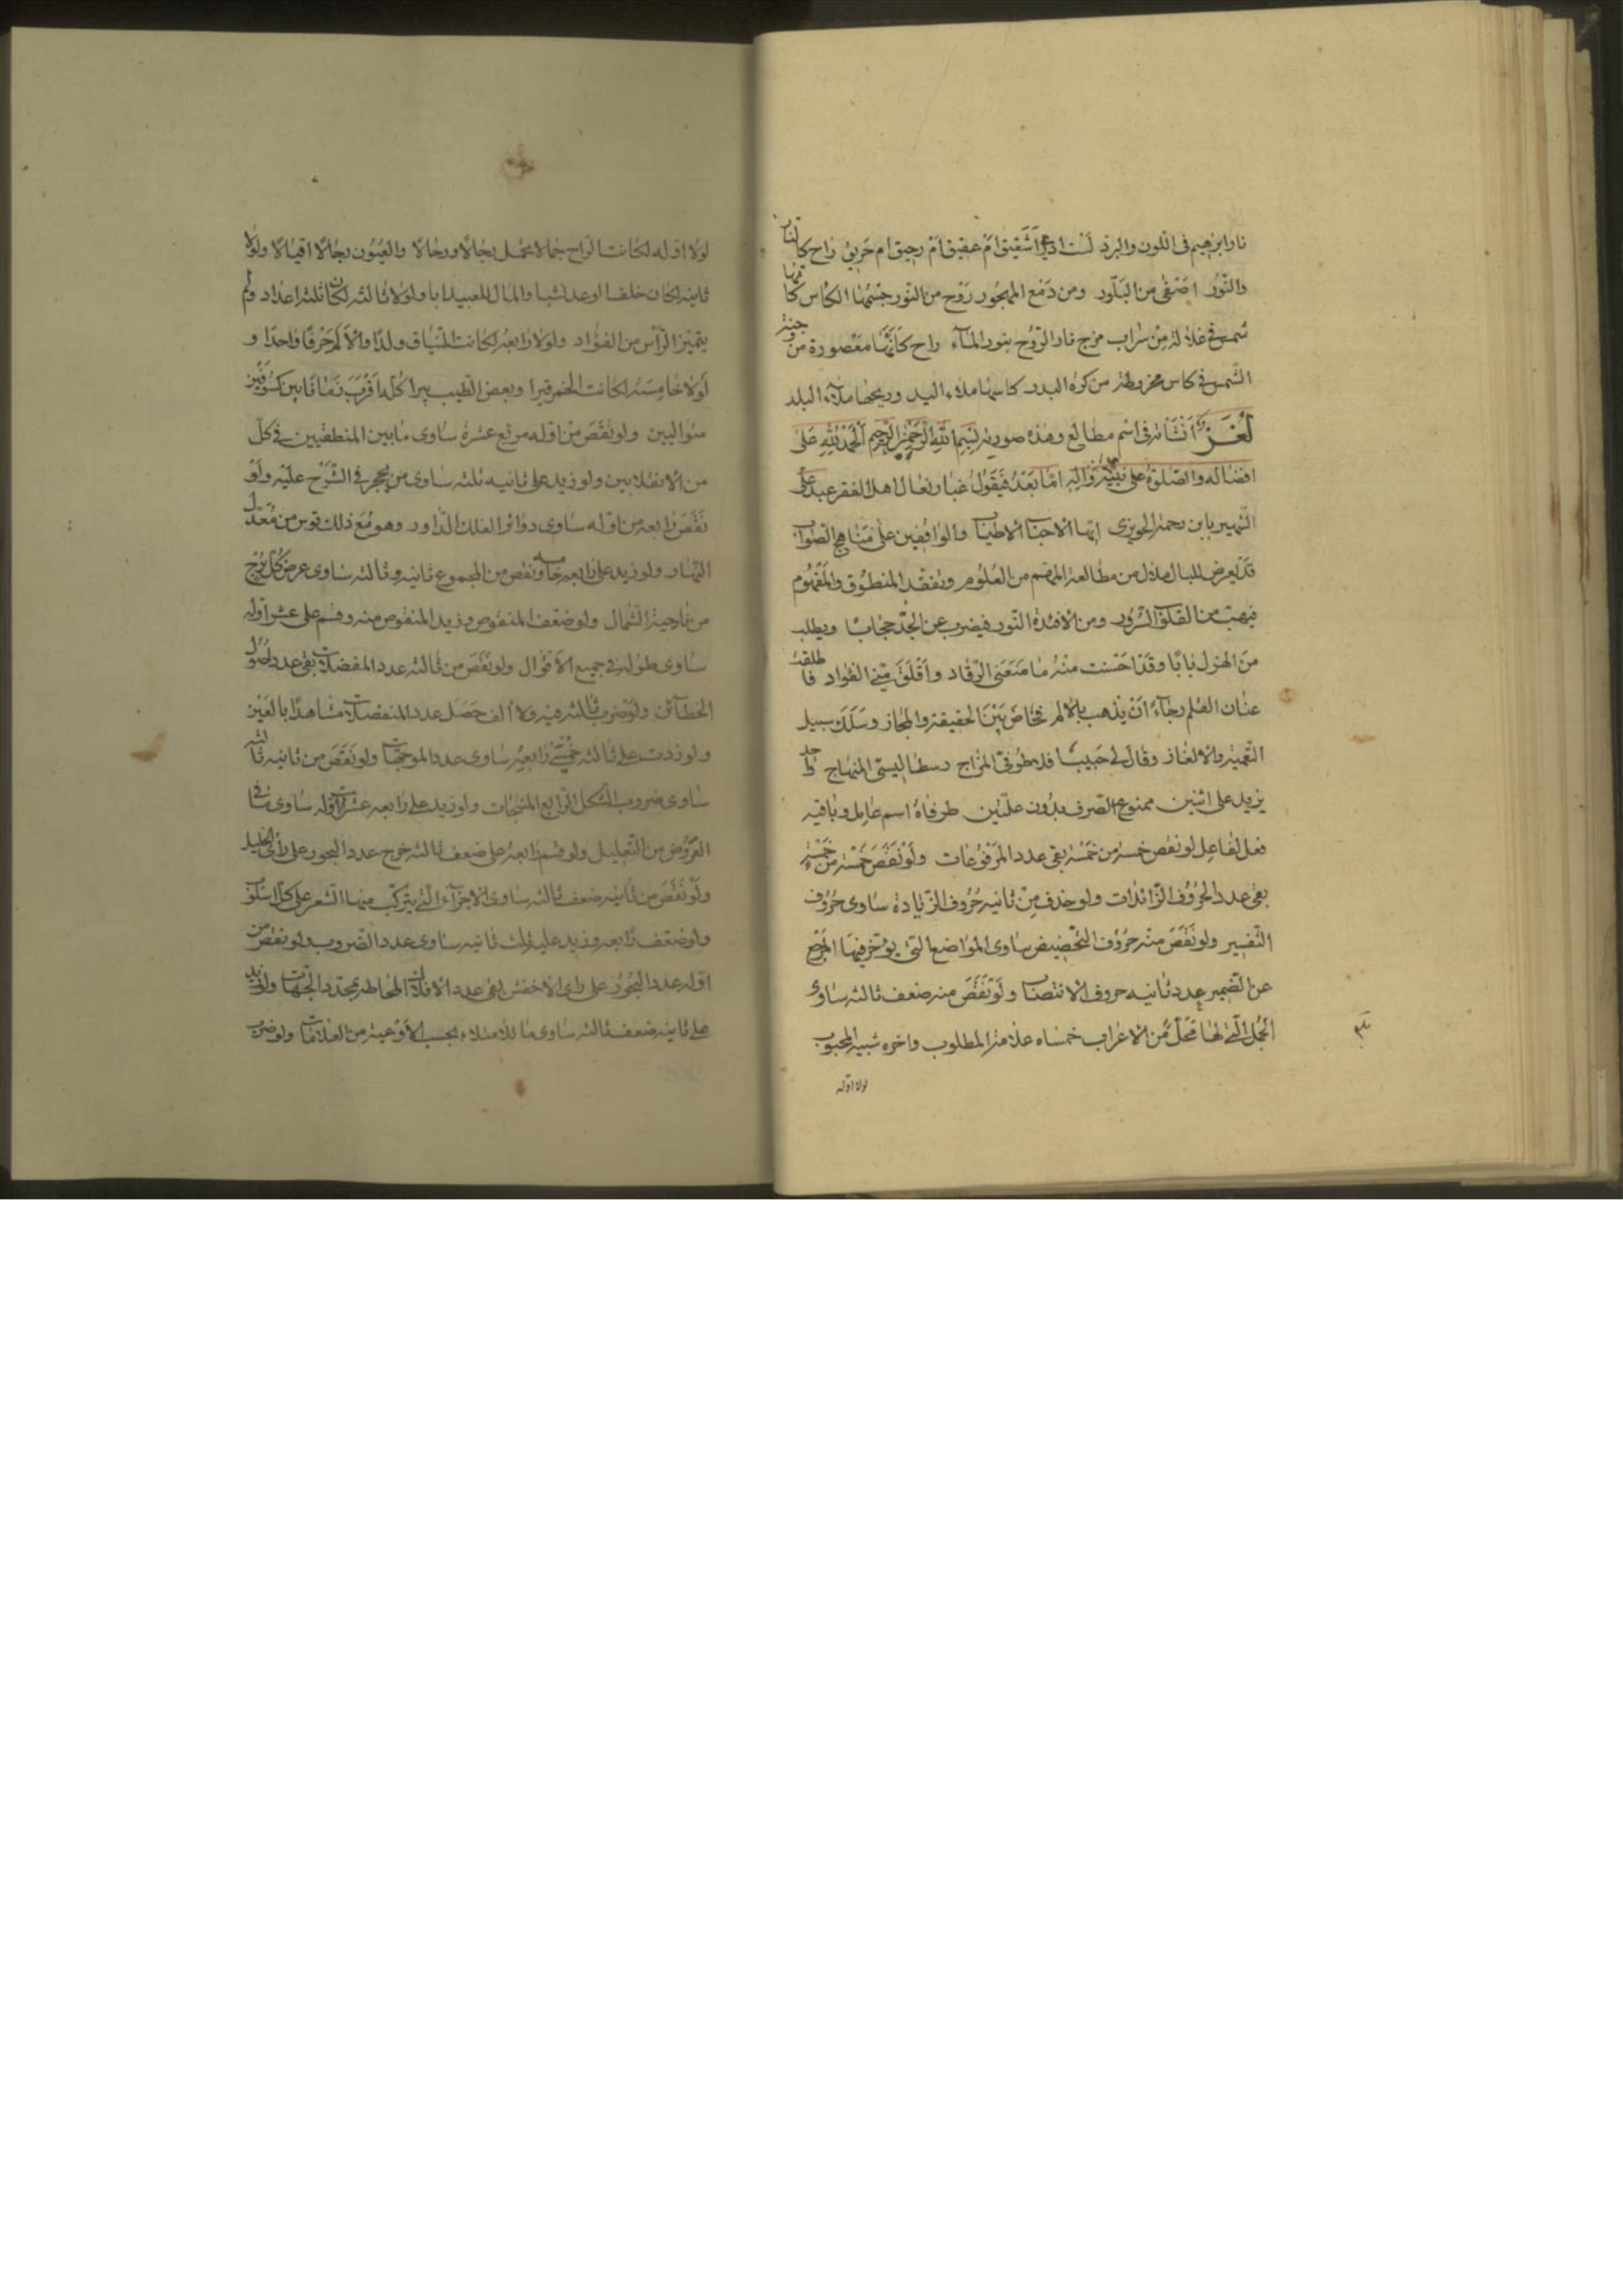 نار ابرٰهيم فى اللون والبرد لست ادرى أشقيق ام عقيق أم رحيق ام حريق راح كالنار
والنّور اصفى من البلّور ومن دمع المهجور روح من النور جسمها الكاس كانها
شمس فى غلالة من سراب مزج نار الروح بنور المآء راح كانّها معصورة من وجنة
الشمس فى كاس مخروطة من كرة البدر كاسها ملاء اليد وريحها ملاء البلد
لغز أنشاته فى اسم مطالع وهذه صورته بسم الله الرحمن الرحيم الحمد لله على
افضاله والصلوة على نبيه وآله امّا بعد فيقول غبار نعال اهل الفقر عبد على
الشهير بابن رحمة الحويزى ايها الاحباب الاطياب والواقفين على مناهج الصواب
قد يعرض للبال ملال من مطالعة المهم من العلوم وتفقد المنطوق والمفهوم
فيهب من القلوب السرور ومن الافئدة النور فيضرب عن الجدّ حجابا ويطلب
من الهزل بابا وقد احسست منه ما منعنى الرقاد وأقلق منّى الفؤاد فاطلقت
عنان القلم رجآء أن يذهب بالالم فخاض بين الحقيقة والمجاز وسلك سبيل
التعمية والالغاز وقال لى حبيب فلاطونى المزاج رسطاليسى المنهاج واحد
يزيد على اثنين ممنوع الصرف بدون علّتين طرفاه اسم عامل وباقيه
فعل لفاعل لو نقص خمسه من خمسة بقى عدد المرفوعات ولو نقص خمسه من خمسة
بقى عدد الحروف الزائدات ولو حذف من ثانيه حروف الزيادة ساوى حروف
التفسير ولو نقص منه حروف التحضيض ساوى المواضع التى يؤخر فيها المرجع
عن الضمير عدد ثانيه حروف الانتصاب ولو نقص منه ضعف ثالثه ساوى
الجمل التى لها محل من الاعراب خمساه علامة المطلوب واخره شبيه المحبوب
لولا اوله
لولا اوله لكانت الراح جمالا تحمل رجالا ورحالا والعيون رجالا اقيالا ولولا
ثانيه لكان خلف الوعد شبا والمال للعبيد ابا ولولا ثالثه لكان ثلثه اعداد ولم
يتميز الرأس من الفؤاد ولولا رابعه لكانت النياق ولدا والالم حرفا واحدا و
لولا خامسه لكانت الخمر قيرا وبعض الطيب بيرا كله اقرب زمان ما بين كسوفين
متواليين ولو نقص من اوله مربع عشرة ساوى ما بين المنطقتين فى كل
من الانقلابين ولو زيد على ثانيه ثلثه ساوى من فى الشرح عليه ولو
نقص رابعه من اوله ساوى دوائر الفلك الداور وهو مع ذلك قوس من معدل
النهار ولو زيد على رابعه خامسه ونقص من المجموع ثانيه وثالثه ساوى عرض كل برج
من ناحية الشمال ولو ضعف المنقوص وزيد المنقوص منه وقسم على عشر اوله
ساوى طوله فى جميع الاقوال ولو نقص من ثالثه عدد المفضلات بقى عدد اصول
الخطآئين ولو ضرب ثالثه فيه ولا الف حصل عدد المنفصلات مشاهدا بالعين
ولو زدت على ثالثه خمسى رابعه ساوى عدد الموجهات ولو نقص من ثانيه ثالثه
ساوى ضروب الشكل الرابع المنتجات ولو زيد على رابعه عشرات اوله ساوى ما فى
العروض من التعليل ولو قسم رابعه على ضعف ثالثه خرج عدد البحور على رأى الخليل
ولو نقص من ثانيه ضعف ثالثه ساوى الاجزآء التى يتركب منها الشعر على كل اسلوب
ولو ضعف رابعه وزيد عليه ثلث ثانيه ساوى عدد الضروب ولو نقص من
اوله عدد البحور على راى الاخفش بقى عدد الافلاك المحاطة بمحدد الجهات ولو زيد
على ثانيه ضعف ثالثه ساوى ما للامتلاء بحسب الاوعية من العلامات ولو ضرب